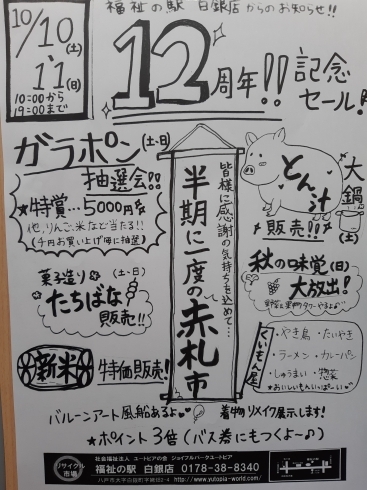 福祉の駅 白銀店からのお知らせ!!
10/10(土)
11(日)
10:00から
19:00まで
12周年!!
記念
セール!
ガラポン(土・日)
抽選会!!
★特賞…5000円分
他、りんご、米など当たる!!
(千円お買い上げ毎に抽選)
皆様に感謝の気持ちを込めて…
半期に一度の赤札市
とん汁
大鍋
販売!!(土)
菓子造り(土・日)
たちばな
販売!!
秋の味覚(日)
大放出!
新米 特価販売!
くいもん屋
・やき鳥 ・たいやき
・ラーメン ・カレーパン
・しゅうまい ・惣菜
★おいしいもんいっぱーい
バルーンアート風船あるよ
着物リメイク展示します!
★ポイント3倍(バス券にもつくよ〜♪)
リサイクル市場
社会福祉法人 ユートピアの会 ジョイフルパークユートピア
福祉の駅 白銀店 0178-38-8340
http://www.yutopia-world.com/